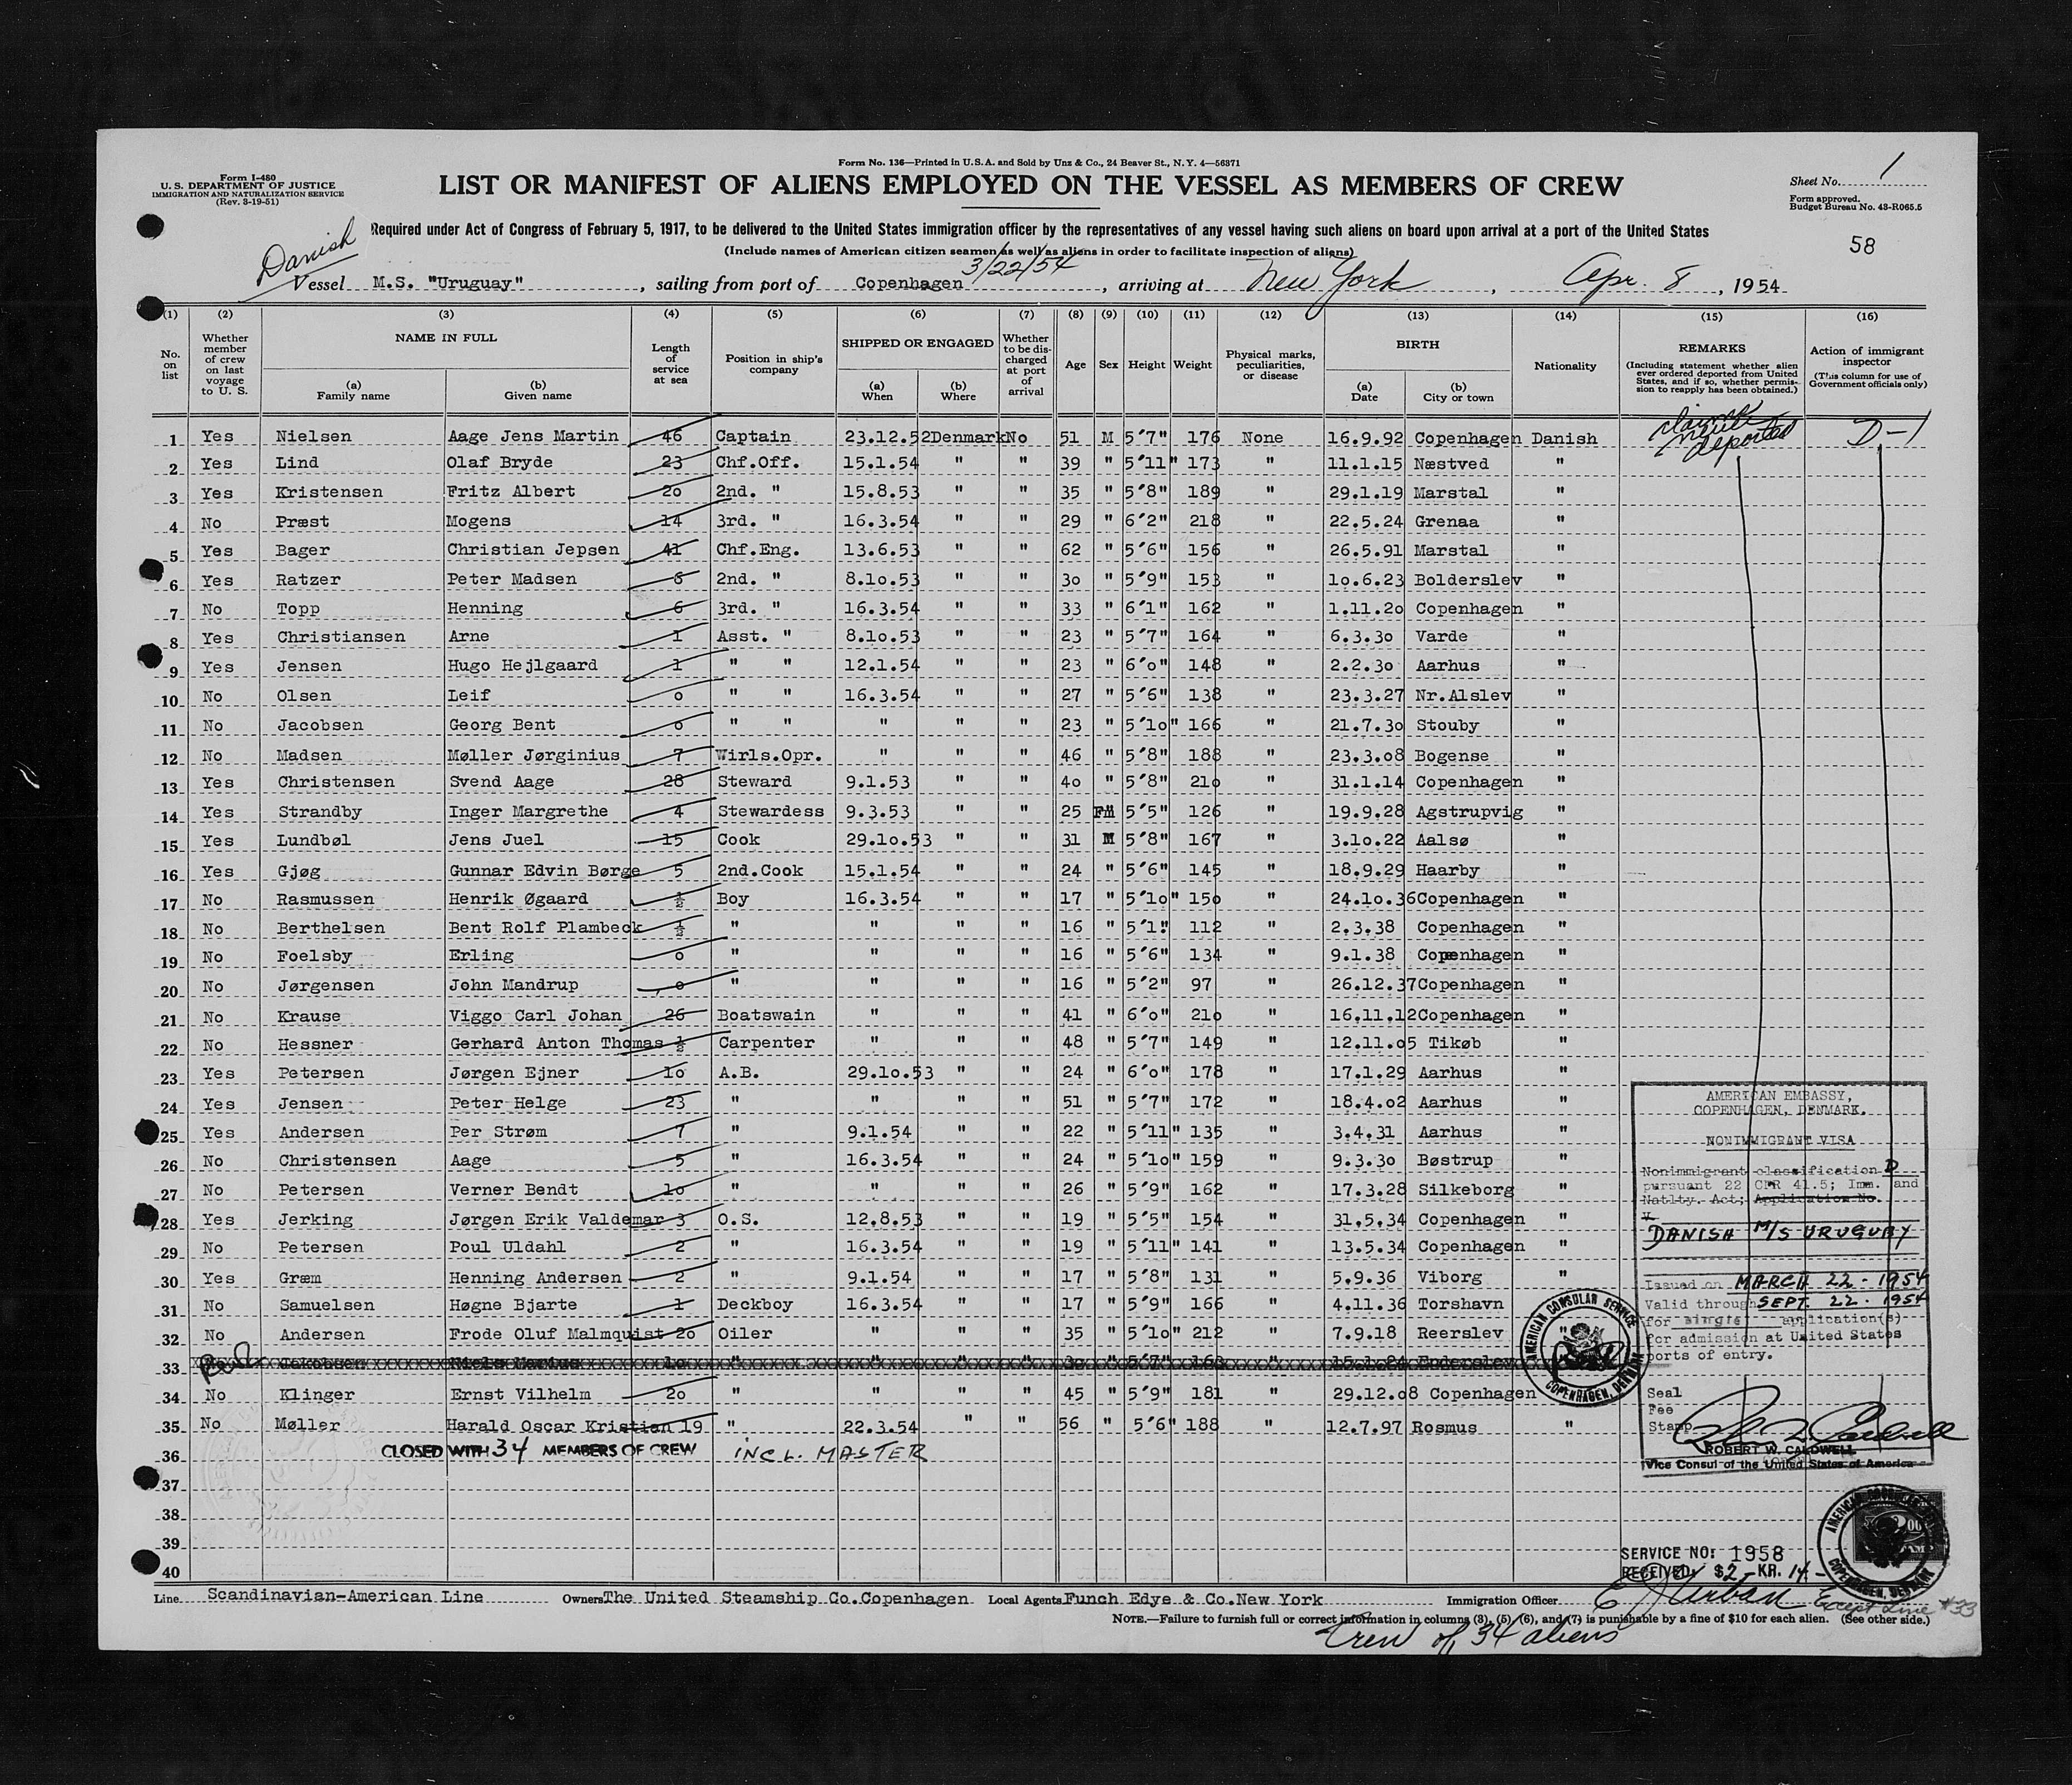 Form No. 136—Printed in U.S.A. and Sold by Unz & Co., 24 Beaver St., N. Y. 4—56371
Form I-480
U. S. DEPARTMENT OF JUSTICE
IMMIGRATION AND NATURALIZATION SERVICE
(Rev. 3-19-51)
LIST OR MANIFEST OF ALIENS EMPLOYED ON THE VESSEL AS MEMBERS OF CREW
Sheet No. 1
Form approved.
Budget Bureau No. 43-R065.5
Required under Act of Congress of February 5, 1917, to be delivered to the United States immigration officer by the representatives of any vessel having such aliens on board upon arrival at a port of the United States
58
(Include names of American citizen seamen as well as aliens in order to facilitate inspection of aliens)
Danish
3/22/54
Vessel M.S. "Uruguay", sailing from port of Copenhagen, arriving at New York, Apr. 8, 1954
(1) (2) (3) (4) (5) (6) (7) (8) (9) (10) (11) (12) (13) (14) (15) (16)
No. on list
Whether member of crew on last voyage to U. S.
NAME IN FULL
(a) Family name
(b) Given name
Length of service at sea
Position in ship's company
SHIPPED OR ENGAGED
(a) When
(b) Where
Whether to be discharged at port of arrival
Age Sex Height Weight
Physical marks, peculiarities, or disease
BIRTH
(a) Date
(b) City or town
Nationality
REMARKS
(Including statement whether alien ever ordered deported from United States, and if so, whether permission to reapply has been obtained.)
Action of immigrant inspector
(This column for use of Government officials only)
1 Yes Nielsen Aage Jens Martin 46 Captain 23.12.52 Denmark No 51 M 5'7" 176 None 16.9.92 Copenhagen Danish deported D-1
2 Yes Lind Olaf Bryde 23 Chf.Off. 15.1.54 " " 39 " 5'11" 173 " 11.1.15 Næstved "
3 Yes Kristensen Fritz Albert 20 2nd. " 15.8.53 " " 35 " 5'8" 189 " 29.1.19 Marstal "
4 No Præst Mogens 14 3rd. " 16.3.54 " " 29 " 6'2" 218 " 22.5.24 Grenaa "
5 Yes Bager Christian Jepsen 41 Chf.Eng. 13.6.53 " " 62 " 5'6" 156 " 26.5.91 Marstal "
6 Yes Ratzer Peter Madsen 6 2nd. " 8.10.53 " " 30 " 5'9" 153 " 10.6.23 Bolderslev "
7 No Topp Henning 6 3rd. " 16.3.54 " " 33 " 6'1" 162 " 1.11.20 Copenhagen "
8 Yes Christiansen Arne 1 Asst. " 8.10.53 " " 23 " 5'7" 164 " 6.3.30 Varde "
9 Yes Jensen Hugo Hejlgaard 1 " " 12.1.54 " " 23 " 6'0" 148 " 2.2.30 Aarhus "
10 No Olsen Leif 0 " " 16.3.54 " " 27 " 5'6" 138 " 23.3.27 Nr.Alslev "
11 No Jacobsen Georg Bent 0 " " " " " 23 " 5'10" 166 " 21.7.30 Stouby "
12 No Madsen Møller Jørginius 7 Wirls.Opr. " " " 46 " 5'8" 188 " 23.3.08 Bogense "
13 Yes Christensen Svend Aage 28 Steward 9.1.53 " " 40 " 5'8" 210 " 31.1.14 Copenhagen "
14 Yes Strandby Inger Margrethe 4 Stewardess 9.3.53 " " 25 F 5'5" 126 " 19.9.28 Agstrupvig "
15 Yes Lundbøl Jens Juel 15 Cook 29.10.53 " " 31 M 5'8" 167 " 3.10.22 Aalsø "
16 Yes Gjøg Gunnar Edvin Børge 5 2nd.Cook 15.1.54 " " 24 " 5'6" 145 " 18.9.29 Haarby "
17 No Rasmussen Henrik Øgaard ½ Boy 16.3.54 " " 17 " 5'10" 150 " 24.10.36 Copenhagen "
18 No Berthelsen Bent Rolf Plambeck ½ " " " " 16 " 5'1" 112 " 2.3.38 Copenhagen "
19 No Foelsby Erling 0 " " " " 16 " 5'6" 134 " 9.1.38 Copenhagen "
20 No Jørgensen John Mandrup 0 " " " " 16 " 5'2" 97 " 26.12.37 Copenhagen "
21 No Krause Viggo Carl Johan 26 Boatswain " " " 41 " 6'0" 210 " 16.11.12 Copenhagen "
22 No Hessner Gerhard Anton Thomas ½ Carpenter " " " 48 " 5'7" 149 " 12.11.05 Tikøb "
23 Yes Petersen Jørgen Ejner 10 A.B. 29.10.53 " " 24 " 6'0" 178 " 17.1.29 Aarhus "
24 Yes Jensen Peter Helge 23 " " " " 51 " 5'7" 172 " 18.4.02 Aarhus "
25 Yes Andersen Per Strøm 7 " 9.1.54 " " 22 " 5'11" 135 " 3.4.31 Aarhus "
26 No Christensen Aage 5 " 16.3.54 " " 24 " 5'10" 159 " 9.3.30 Bøstrup "
27 No Petersen Verner Bendt 10 " " " " 26 " 5'9" 162 " 17.3.28 Silkeborg "
28 Yes Jerking Jørgen Erik Valdemar 3 O.S. 12.8.53 " " 19 " 5'5" 154 " 31.5.34 Copenhagen "
29 No Petersen Poul Uldahl 2 " 16.3.54 " " 19 " 5'11" 141 " 13.5.34 Copenhagen "
30 Yes Græm Henning Andersen 2 " 9.1.54 " " 17 " 5'8" 131 " 5.9.36 Viborg "
31 No Samuelsen Høgne Bjarte 1 Deckboy 16.3.54 " " 17 " 5'9" 166 " 4.11.36 Torshavn "
32 No Andersen Frode Oluf Malmquist 20 Oiler " " " 35 " 5'10" 212 " 7.9.18 Reerslev "
33 Jakobsen Niels Marius 10 " " " " 30 " 5'7" "
34 No Klinger Ernst Vilhelm 20 " " " " 45 " 5'9" 181 " 29.12.08 Copenhagen
35 No Møller Harald Oscar Kristian 19 " 22.3.54 " " 56 " 5'6" 188 " 12.7.97 Rosmus "
36 CLOSED WITH 34 MEMBERS OF CREW INCL. MASTER
37
38
39
40
AMERICAN EMBASSY,
COPENHAGEN, DENMARK.
NONIMMIGRANT VISA
Nonimmigrant classification D
pursuant 22 CFR 41.5; Imm. and
Natlty. Act; Application No.
V
DANISH M/S URUGUAY
Issued on MARCH 22 - 1954
Valid through SEPT. 22 - 1954
for single application(s)
for admission at United States
ports of entry.
Seal
Fee
Stamp
ROBERT W. CALDWELL
Vice Consul of the United States of America
AMERICAN CONSULAR SERVICE
COPENHAGEN, DENMARK
SERVICE NO: 1958
RECEIVED: $2.- KR. 14-
Line Scandinavian-American Line Owners The United Steamship Co.Copenhagen Local Agents Funch Edye & Co.New York Immigration Officer
Except Line #33
NOTE.—Failure to furnish full or correct information in columns (3), (5), (6), and (7) is punishable by a fine of $10 for each alien. (See other side.)
Crew of 34 aliens